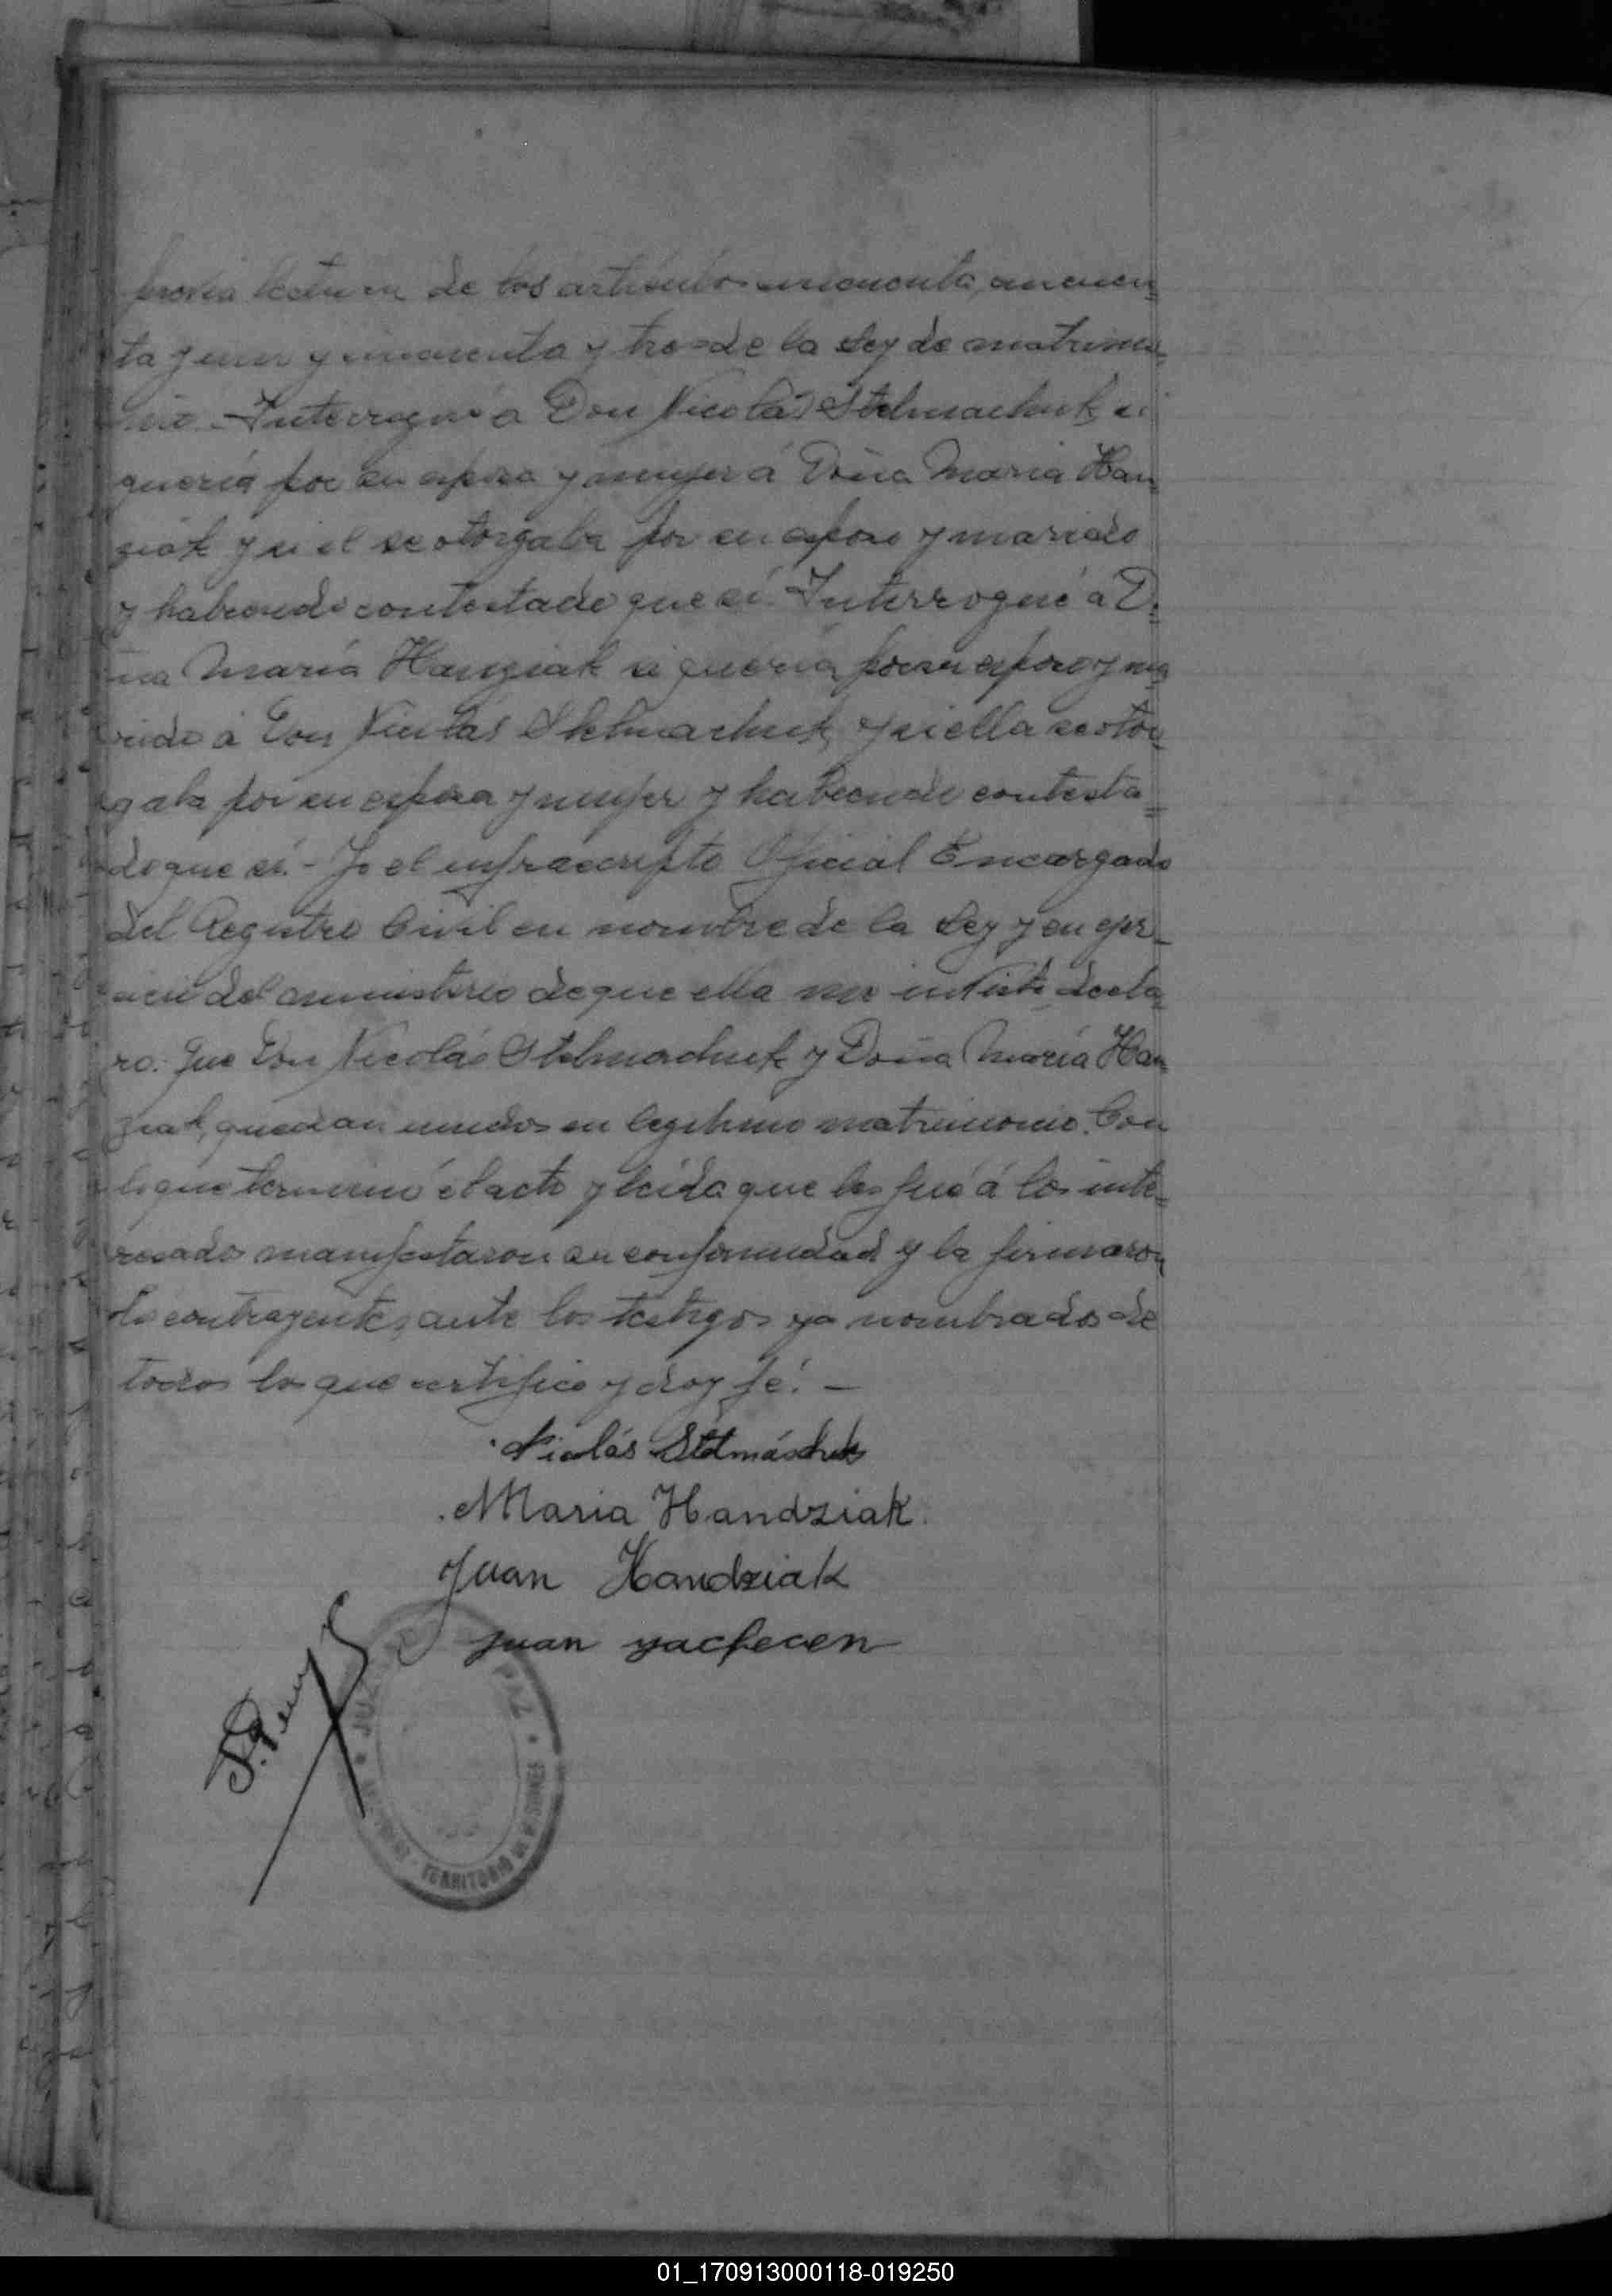 previa lectura de los articulos cincuenta, cincuen=
ta y uno y cincuenta y tres de la Ley de matrimo=
nio.- Interrogué a Don Nicolás Stelmachuk si
quería por su esposa y mujer á Doña Maria Han=
ziak y si el se otorgaba por su esposo y marido
y habiendo contestado que sí. Interrogué á D=
ña María Hanziak si quería por su esposo y ma=
rido á Don Nicolás Stelmachuk y si ella se otor=
gaba por su esposa y mujer y habiendo contesta=
do que sí.- Yo el infraescripto Oficial Encargado
del Registro Civil en nombre de la Ley y en ejer=
cicio del ministerio de que ella me inviste decla=
ro: Que Don Nicolás Stelmachuk y Doña María Han=
ziak, quedan unidos en legitimo matrimonio. Con
lo que terminó el acto y leída que les fué á los inte=
resados manifestaron su conformidad y la firmaron
los contrayentes, ante los testigos ya nombrados de
todos lo que certifico y doy fé.-
Nicolás Stelmáschuk
Maria Handziak.
Juan Handziak
Juan yachecen
JUZ PAZ
TERRITORIO DE MISIONES
01_170913000118-019250